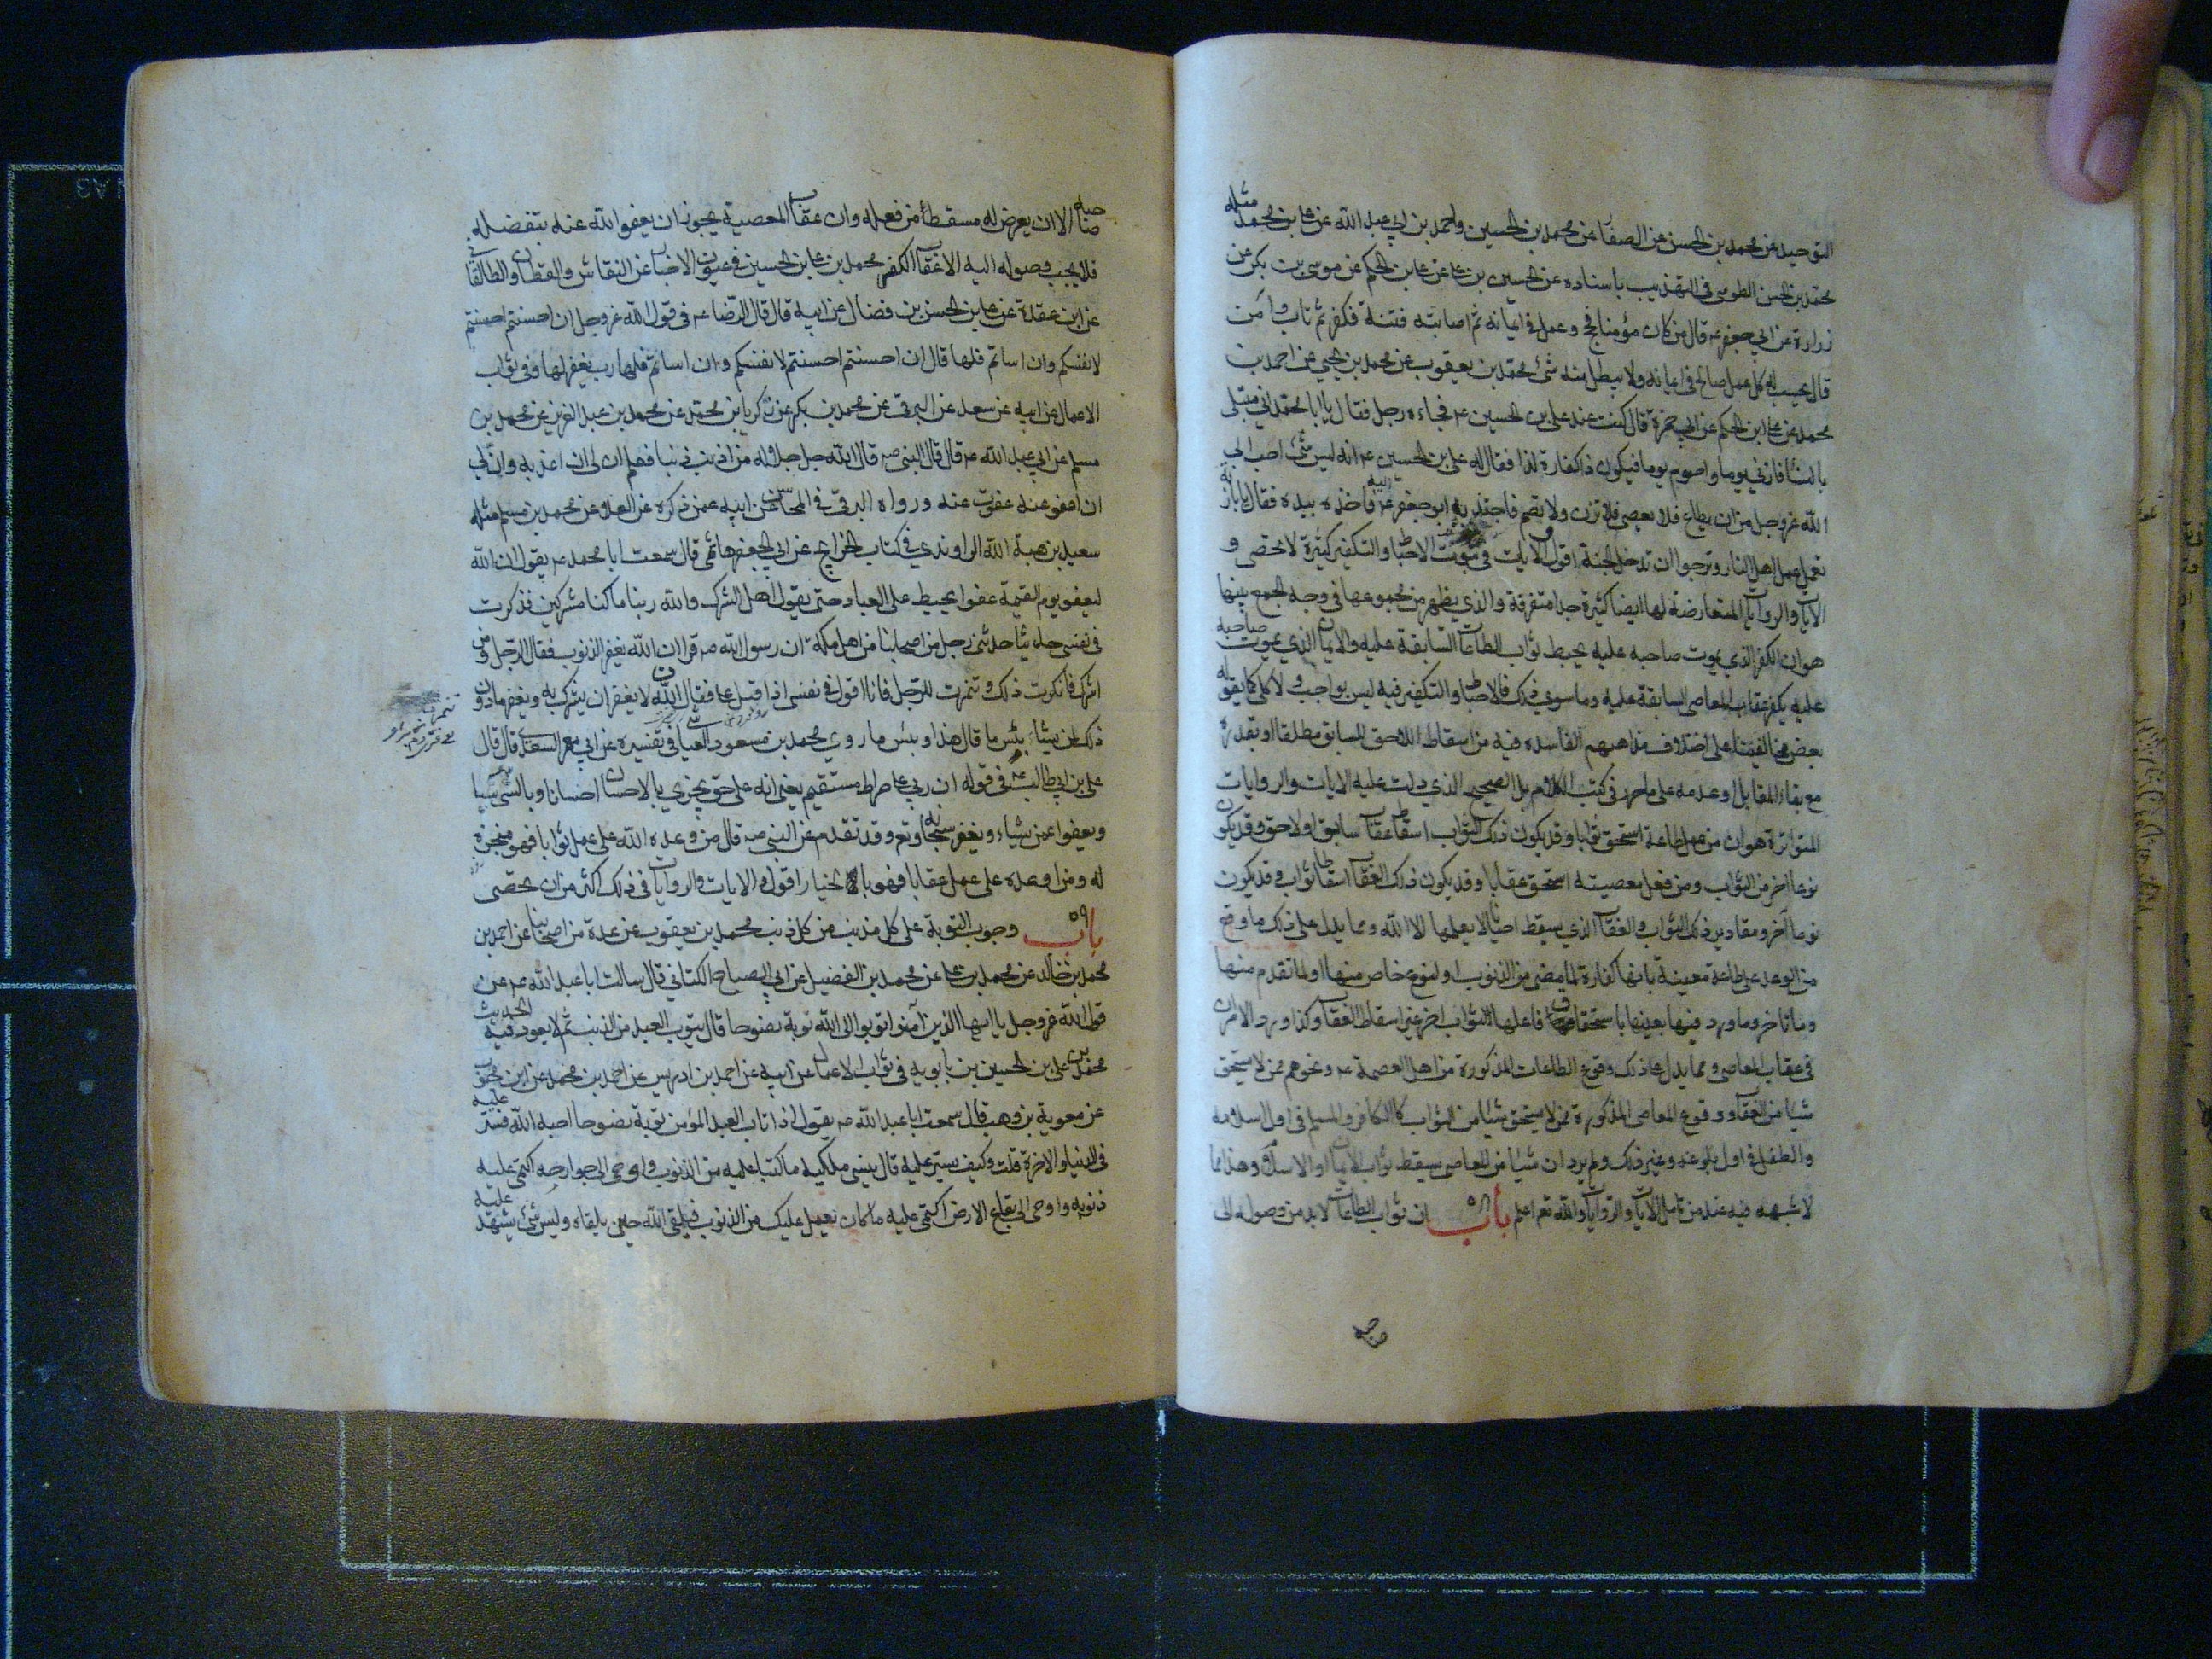 التوحيد عن محمد بن الحسن عن الصفار عن محمد بن الحسين واحمد بن ابي عبد الله عن علي بن محمد مثله
محمد بن الحسن الطوسي في التهذيب باسناده عن الحسين بن علي عن علي بن الحكم عن موسى بن بكر عن
زرارة عن ابي جعفر ع قال من كان مؤمنا فحج وعمل في ايمانه ثم اصابته فتنة فكفر ثم تاب وآمن
قال يحسب له كل عمل صالح في ايمانه ولا يبطل منه شئ محمد بن يعقوب عن محمد بن يحيى عن احمد بن
محمد عن علي بن الحكم عن ابي حمزة قال كنت عند علي بن الحسين ع فجاءه رجل فقال يا ابا محمد اني مبتلى
بالنساء فازني يوما واصوم يوما فيكون ذا كفارة لذا فقال له علي بن الحسين ع انه ليس شئ احب الى
الله عز وجل من ان يطاع فلا يعصى فلا تزن ولا تصم فاجتذبه ابو جعفر ع اليه فاخذه بيده فقال يا بازنة
تعمل عمل اهل النار وترجو ان تدخل الجنة اقول والايات في ثبوت الاحباط والتكفير كثيرة لا تحصى و
الايات والروايات المتعارضة لها ايضا كثيرة جدا متفرقة والذي يظهر من مجموعها في وجه الجمع بينها
هو ان الكفر الذي يموت صاحبه عليه يحبط ثواب الطاعات السابقة عليه والايمان الذي يموت صاحبه
عليه يكفر عقاب المعاصي السابقة عليه وما سوى ذلك فالاحباط والتكفير فيه ليس بواجب ولا كلي كما يقوله
بعض مخالفينا على اختلاف مذاهبهم الفاسده فيه من اسقاط اللاحق للسابق مطلقا او بقدره
مع بقاء المقابل او عدمه على ما حرر في كتب الكلام بل الصحيح الذي دلت عليه الايات والروايات
المتواترة هو ان من عمل طاعة استحق ثوابا وقد يكون ذلك الثواب اسقاط عقاب سابق او لاحق وقد يكون
نوعا آخر من الثواب ومن فعل معصيته استحق عقابا وقد يكون ذلك العقاب اسقاط ثواب وقد يكون
نوعا آخر ومقادير ذلك الثواب والعقاب الذي يسقط احيانا لا يعلمها الا الله ومما يدل على ذلك ما وقع
من الوعد على طاعة معينة بانها كفارة لما مضى من الذنوب او لنوع خاص منها او لما تقدم منها
وما تاخر وما ورد فيها بعينها باستحقاق فاعلها الثواب اخر غير اسقاط العقاب وكذا ورد الامران
في عقاب المعاصي ومما يدل على ذلك وقوع الطاعات المذكورة من اهل العصمة ع ونحوهم ممن لا يستحق
شيئا من العقاب ووقوع المعاصي المذكورة ممن لا يستحق شيئا من الثواب كالكافر والمسلم في اول اسلامه
والطفل في اول بلوغه وغير ذلك ولم يرد ان شيئا من المعاصي يسقط ثواب الايمان او الاسلام وهذا مما
لا شبهه فيه عند من تامل الايات والروايات والله تع اعلم باب ٥٨ ان ثواب الطاعات لا بد من وصوله الى
صاحبه
صاحبه الا ان يعرض له مسقط من فعله وان عقاب المعصية يجوز ان يعفو الله عنه بتفضله
فلا يجب وصوله اليه الا عقاب الكفر محمد بن علي بن الحسين في عيون الاخبار عن النقاش والقطان والطالقاني
عن ابن عقدة عن علي بن الحسن بن فضال عن ابيه قال قال الرضا ع في قول الله عز وجل ان احسنتم احسنتم
لانفسكم وان اساتم فلها قال ان احسنتم احسنتم لانفسكم وان اساتم فلها رب يغفر لها وفي ثواب
الاعمال عن ابيه عن سعد عن البرقي عن محمد بن بكر عن زكريا بن محمد عن محمد بن عبد العزيز عن محمد بن
مسلم عن ابي عبد الله ع قال قال النبي ص قال الله جل جلاله من اذنب ذنبا فعلم ان لي ان اعذبه وان لي
ان اعفو عنه عفوت عنه ورواه البرقي في المحاسن عن ابيه عمن ذكره عن العلا عن محمد بن مسلم مثله
سعيد بن هبة الله الراوندي في كتاب الخرايج عن ابي الجعفر هاشمي قال سمعت ابا محمد ع يقول ان الله
ليعفو يوم القيمة عفوا يحيط على العباد حتى يقول اهل الشرك والله ربنا ما كنا مشركين فذكرت
في نفسي حديثا حدثني رجل من اصحابنا من اهل مكة ان رسول الله ص قرا ان الله يغفر الذنوب فقال الرجل ومن
اشرك فانكرت ذلك وتنمرت للرجل فانا اقول في نفسي اذا قبل علي فقال ان الله لا يغفر ان يشرك به ويغفر ما دون
ذلك لمن يشاء بئس ما قال هذا وبئس ما روى محمد بن مسعود العياشي في تفسيره عن ابي معمر السعدي قال قال
علي بن ابي طالب ع في قوله ان ربي على صراط مستقيم يعني انه على حق يجزي بالاحسان احسانا وبالسئ سيئا
ويعفوا عمن يشاء ويغفر سبحانه وتع وقد تقدم عن النبي ص قال من وعده الله على عمل ثوابا فهو منجزه
له ومن اوعده على عمل عقابا فهو بالخيار اقول والايات والروايات في ذلك اكثر من ان تحصى
باب ٥٩ وجوب التوبة على كل مذنب من كل ذنب محمد بن يعقوب عن عدة من اصحابنا عن احمد بن
محمد بن خالد عن محمد بن علي عن محمد بن الفضيل عن ابي الصباح الكناني قال سالت ابا عبد الله ع عن
قول الله عز وجل يا ايها الذين آمنوا توبوا الى الله توبة نصوحا قال يتوب العبد من الذنب ثم لا يعود فيه الحديث
محمد بن علي بن الحسين بن بابويه في ثواب الاعمال عن ابيه عن احمد بن ادريس عن احمد بن محمد عن ابن محبوب
عن معوية بن وهب قال سمعت ابا عبد الله ص يقول اذا تاب العبد المؤمن توبة نصوحا احبه الله فستر عليه
في الدنيا والاخرة قلت وكيف يستر عليه قال ينسي ملكيه ما كتبا عليه من الذنوب واوحى الى جوارحه اكتمي عليه
ذنوبه واوحى الى بقاع الارض اكتمي عليه ما كان يعمل عليك من الذنوب فيلقى الله حين يلقاه وليس شئ يشهد عليه